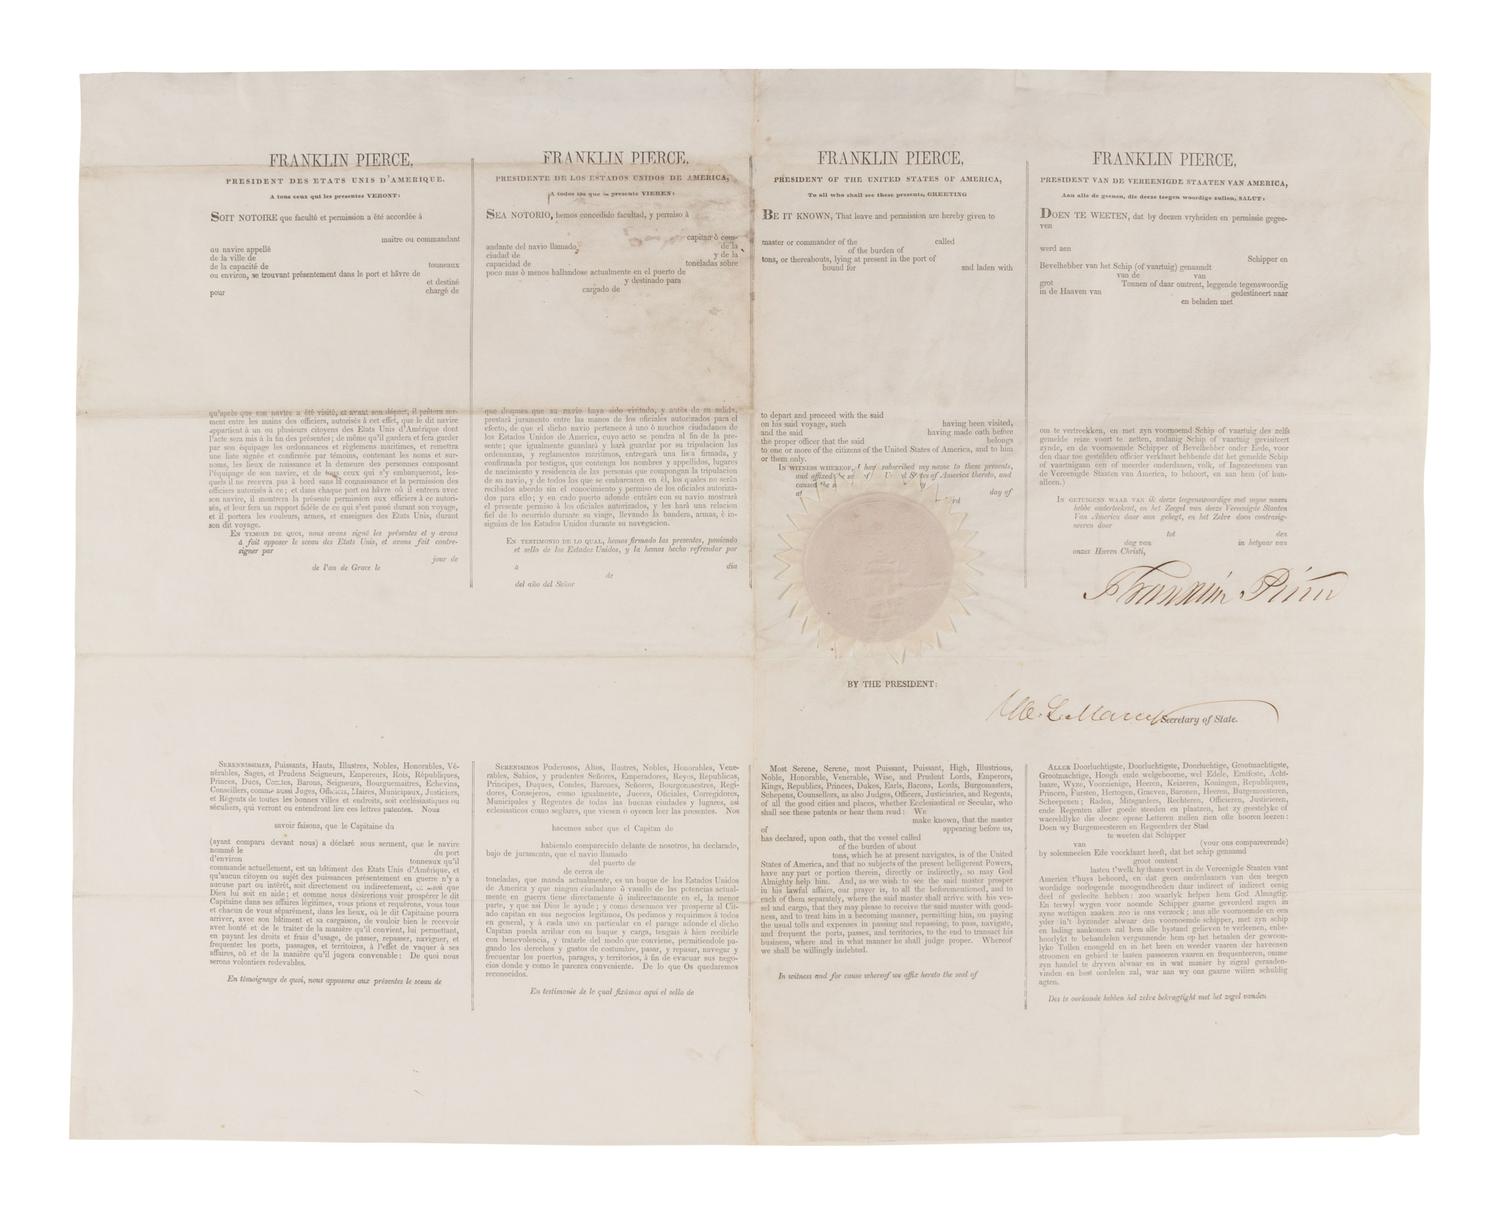 FRANKLIN PIERCE,
PRESIDENT DES ETATS UNIS D'AMERIQUE.
A tous ceux qui les presentes VERONT:
SOIT NOTOIRE que faculté et permission a été accordée à
maitre ou commandant
au navire appellé
de la ville de
de la capacité de tonneaux
ou environ, se trouvant présentement dans le port et hâvre de
et destiné
pour chargé de
qu'après que son navire a été visité, et avant son départ, il prêtera ser-
ment entre les mains des officiers, autorisés à cet effet, que le dit navire
appartient à un ou plusieurs citoyens des Etats Unis d'Amérique dont
l'acte sera mis à la fin des présentes; de même qu'il gardera et fera garder
par son équipage les ordonnances et réglemens maritimes, et remettra
une liste signée et confirmée par témoins, contenant les noms et sur-
noms, les lieux de naissance et la demeure des personnes composant
l'équipage de son navire, et de tous ceux qui s'y embarqueront, les-
quels il ne recevra pas à bord sans la connaissance et la permission des
officiers autorisés à ce; et dans chaque port ou hâvre où il entrera avec
son navire, il montrera la présente permission aux officiers à ce autori-
sés, et leur fera un rapport fidèle de ce qui s'est passé durant son voyage,
et il portera les couleurs, armes, et enseignes des Etats Unis, durant
son dit voyage.
EN TEMOIN DE QUOI, nous avons signé les présentes et y avons
à fait apposer le sceau des Etats Unis, et avons fait contre-
signer par
jour de
de l'an de Grace le
FRANKLIN PIERCE,
PRESIDENTE DE LOS ESTADOS UNIDOS DE AMERICA,
A todos los que las presente VIEREN:
SEA NOTORIO, hemos concedido facultad, y permiso à
capitan ò com-
andante del navio llamado de la
ciudad de y de la
capacidad de toneladas sobre
poco mas ò menos hallandose actualmente en el puerto de
y destinado para
cargado de
que despues que su navio haya sido visitado, y antès de su salida,
prestará juramento entre las manos de los oficiales autorizados para el
efecto, de que el dicho navio pertenece à uno ò muchos ciudadanos de
los Estados Unidos de America, cuyo acto se pondra al fin de la pre-
sente; que igualmente guardará y hará guardar por su tripulacion las
ordenanzas, y reglamentos maritimos, entregará una lista firmada, y
confirmada por testigos, que contenga los nombres y appellidos, lugares
de nacimiento y residencia de las personas que compongan la tripulacion
de su navio, y de todos los que se embarcaren en él, los quales no serán
recibidos abordo sin el conocimiento y permiso de los oficiales autoriza-
dos para ello; y en cado puerto adonde entràre con su navio mostrará
el presente permiso à los oficiales autorizados, y les hará una relacion
fiel de lo ocurrido durante su viage, llevando la bandera, armas, è in-
signias de los Estados Unidos durante su navegacion.
EN TESTIMONIO DE LO QUAL, hemos firmado las presentes, poniendo
el sello de los Estados Unidos, y la hemos hecho refrendar por
a dia
de
del año del Señor
FRANKLIN PIERCE,
PRESIDENT OF THE UNITED STATES OF AMERICA,
To all who shall see these presents, GREETING
BE IT KNOWN, That leave and permission are hereby given to
master or commander of the called
of the burden of
tons, or thereabouts, lying at present in the port of
bound for and laden with
to depart and proceed with the said
on his said voyage, such having been visited,
and the said having made oath before
the proper officer that the said belongs
to one or more of the citizens of the United States of America, and to him
or them only.
IN WITNESS WHEREOF, I have subscribed my name to these presents,
and affixed the seal of the United States of America thereto, and
caused the
at day of
FRANKLIN PIERCE,
PRESIDENT VAN DE VEREENIGDE STAATEN VAN AMERICA,
Aan alle de geenen, die deeze tegen woordige zullen, SALUT:
DOEN TE WEETEN, dat by deezen vryheiden en permissie gegee-
ven
werd aen
Schipper en
Bevelhebber van het Schip (of vaartuig) genaamdt
van de van
grot Tonnen of daar omtrent, leggende tegenswoordig
in de Haaven van gedestineert naar
en beladen met
om te vertreekken, en met zyn voornoemd Schip of vaartuig des zelfs
gemelde reize voort te zetten, zodanig Schip of vaartuig gevisiteert
zynde, en de voornoemde Schipper of Bevelhebber onder Eede, voor
den daar toe gestelden officier verklaart hebbende dat het gemelde Schip
of vaartuigaan een of meerder onderdanen, volk, of Ingezeetenen van
de Vereenigde Staaten van America, te behoort, en aan hem (of hun-
alleen.)
IN GETUIGENS WAAR VAN ik deeze teegenswoordige met myne naem
hebbe onderteekent, en het Zeegel van deeze Vereenigde Staaten
Van America daar aan gehegt, en het Zelve doen contrasig-
neeren door
tot den
dag van in hetyaar van
onzes Heeren Christi,
Franklin Pierce
BY THE PRESIDENT:
W. L. Marcy Secretary of State.
SERENNISSIMES, Puissants, Hauts, Illustres, Nobles, Honorables, Vé-
nérables, Sages, et Prudens Seigneurs, Empereurs, Rois, Républiques,
Princes, Ducs, Comtes, Barons, Seigneurs, Bourguemaitres, Echevins,
Conseillers, comme aussi Juges, Officiers, Maires, Municipaux, Justiciers,
et Régents de toutes les bonnes villes et endroits, soit ecclésiastiques ou
séculiers, qui verront ou entendront lire ces lettres patentes. Nous
savoir faisons, que le Capitaine du
(ayant comparu devant nous) a déclaré sous serment, que le navire
nommé le du port
d'environ tonneaux qu'il
commande actuellement, est un bâtiment des Etats Unis d'Amérique, et
qu'aucun citoyen ou sujét des puissances présentement en guerre n'y a
aucune part ou intérêt, soit directement ou indirectement, ainsi que
Dieu lui soit en aide; et comme nous désierions voir prospérer le dit
Capitaine dans ses affaires légitimes, vous prions et requérons, vous tous
et chacun de vous séparément, dans les lieux, où le dit Capitaine pourra
arriver, avec son bâtiment et sa cargaison, de vouloir bien le recevoir
avec bonté et de le traiter de la manière qu'il convient, lui permettant,
en payant les droits et frais d'usage, de passer, repasser, naviguer, et
frequenter les ports, passages, et territoires, à l'effet de vaquer à ses
affaires, où et de la manière qu'il jugera convenable: De quoi nous
serons volontiers redevables.
En témoignage de quoi, nous apposons aux présentes le sceau de
SERENISIMOS Poderosos, Altos, Ilustres, Nobles, Honorables, Vene-
rables, Sabios, y prudentes Señores, Emperadores, Reyes, Republicas,
Principes, Duques, Condes, Barones, Señores, Bourgomaestres, Regi-
dores, Consejeros, como igualmente, Jueces, Oficiales, Corregidores,
Municipales y Regentes de todas las buenas ciudades y lugares, asi
eclesiasticos como seglares, que viesen ò oyesen leer las presentes. Nos
hacemos saber que el Capitan de
habiendo comparecido delante de nosotros, ha declarado,
bajo de juramento, que el navio llamado
del puerto de
de cerca de
toneladas, que manda actualmente, es un buque de los Estados Unidos
de America y que ningun ciudadano ò vasallo de las potencias actual-
mente en guerra tiene directamente ò indirectamente en el, la menor
parte, y que asi Dios le ayude; y como deseamos ver prosperar al Ci-
tado capitan en sus negocios legitimos, Os pedimos y requirimos à todos
en general, y à cada uno en particular en el parage adonde el dicho
Capitan pueda arribar con su buque y carga, tengais à bien recibirle
con benevolencia, y tratarle del modo que conviene, permitiendole pa-
gando los derechos y gastos de costumbre, pasar, y repasar, navegar y
frecuentar los puertos, parages, y territorios, à fin de evacuar sus nego-
cios donde y como le parezca conveniente. De lo que Os quedaremos
reconocidos.
En testimonio de lo qual fixámos aqui el sello de
Most Serene, Serene, most Puissant, Puissant, High, Illustrious,
Noble, Honorable, Venerable, Wise, and Prudent Lords, Emperors,
Kings, Republics, Princes, Dukes, Earls, Barons, Lords, Burgomasters,
Schepens, Counsellors, as also Judges, Officers, Justiciaries, and Regents,
of all the good cities and places, whether Ecclesiastical or Secular, who
shall see these patents or hear them read: We
make known, that the master
of appearing before us,
has declared, upon oath, that the vessel called
of the burden of about
tons, which he at present navigates, is of the United
States of America, and that no subjects of the present belligerent Powers,
have any part or portion therein, directly or indirectly, so may God
Almighty help him. And, as we wish to see the said master prosper
in his lawful affairs, our prayer is, to all the beforementioned, and to
each of them separately, where the said master shall arrive with his ves-
sel and cargo, that they may please to receive the said master with good-
ness, and to treat him in a becoming manner, permitting him, on paying
the usual tolls and expenses in passing and repassing, to pass, navigate,
and frequent the ports, passes, and territories, to the end to transact his
business, where and in what manner he shall judge proper. Whereof
we shall be willingly indebted.
In witness and for cause whereof we affix hereto the seal of
ALLER Doorluchtigste, Doorluchtigste, Doorluchtige, Grootmachtigste,
Grootmachtige, Hoogh ende welgeboorne, wel Edele, Erntfeste, Acht-
baare, Wyze, Voorzienige, Heeren, Keizeren, Koningen, Republiquen,
Princen, Fursten, Hertogen, Graeven, Baronen, Heeren, Burgemeesteren,
Scheepenen; Raden, Mitsgaders, Rechteren, Officieren, Justicieren,
ende Regenten aller goede steeden en plaatzen, het zy geestelyke of
waereldlyke die deeze opene Letteren zullen zien ofte hooren leezen:
Doen wy Burgemeesteren en Regeerders der Stad
te weeten dat Schipper
van (voor ons compareerende)
by solemneelen Ede voorklaart heeft, dat het schip genaamd
groot omtent
lasten t'welk hy thans voort in de Vereenigde Staaten vant
America t'huys behoord, en dat geen onderdaanen van den teegen
wordige oorlogende moogendheeden daar indirect of indirect eenig
deel of gedeelte hebben: zoo waarlyk helpen hem God Almagtig.
En terwyl wygen voor noemde Schipper gaarne gevorderd zagen in
zyne wettigen zaaken zoo is ons verzoek; ann alle voornoemde en een
yder in't byzonder alwaar den voornoemde schipper, met zyn schip
en lading aankomen zal hem alle bystand gelieven te verleenen, enbe-
hoorlykt te behandelen vergunnende hem op het betaalen der gewoon-
lyke Tollen enongeld en en het heen en weeder vaaren der haveenen
stroomen en gebied te lasten passeeren vaaren en frequenteeren, omme
zyn handel te dryven alwaar en in wat manier hy zigzal geraaden-
vinden en best oordelen zal, war aan wy ons gaarne willen schuldig
agten.
Des te oorkonde hebben het zelve bekragtight met het zegel vanden